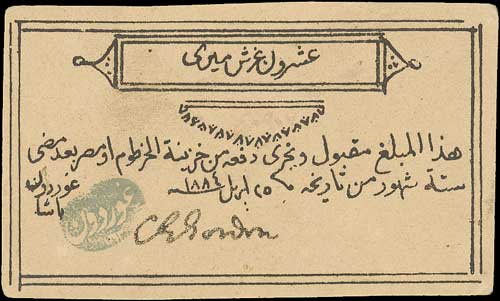 عشرون غرش ميرى
هذا المبلغ مقبول ويجرى دفعه من خزينة الخرطوم او مصر بعد مضى
ستة شهور من تاريخه ٢٥ ابريل ١٨٨٤ سنة غوردون
باشا
C G Gordon